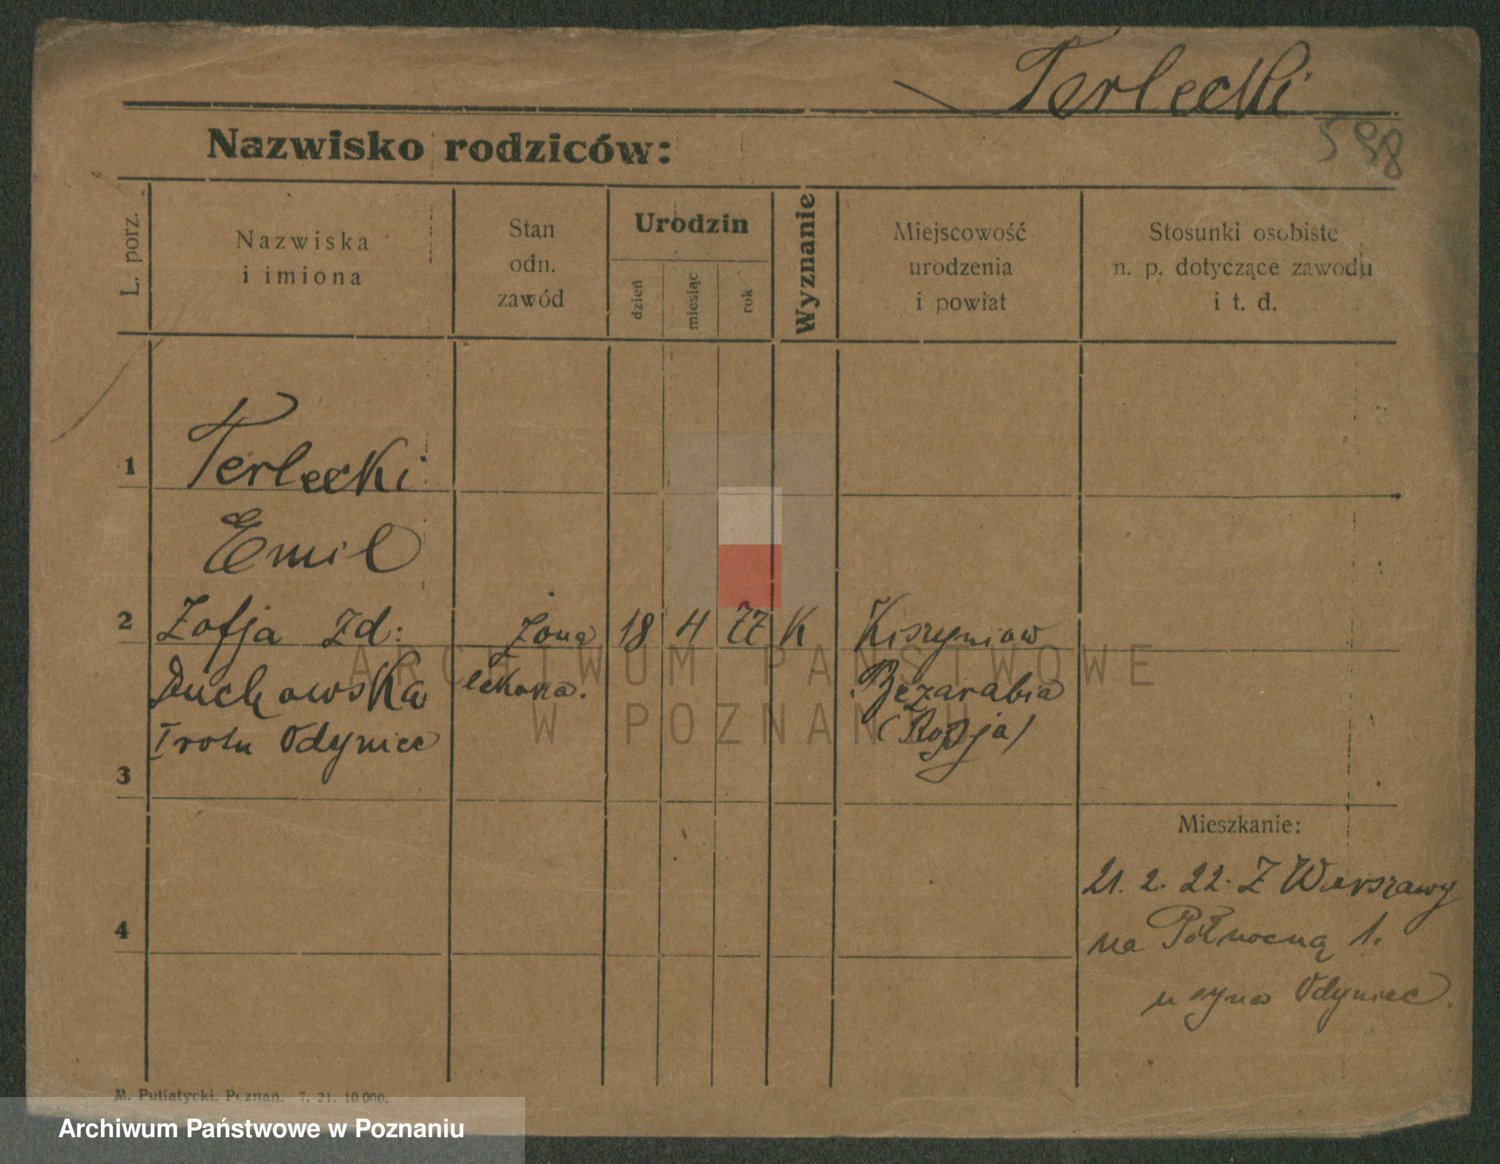 Terlecki
598
Nazwisko rodziców:
L. porz.
Nazwiska
i imiona
Stan
odn.
zawód
Urodzin
dzień
miesiąc
rok
Wyznanie
Miejscowość
urodzenia
i powiat
Stosunki osobiste
n. p. dotyczące zawodu
i t. d.
1
Terlecki
Emil
2
Zofja zd:
żona
18
4
77
K
Kiszyniow
Duchowska
lekarza.
Bezarabia
Odyniec
(Rosja)
3
Mieszkanie:
21. 2. 22. Z Warszawy
na Północną 1.
u syna Odyniec.
4
M. Putiatycki. Poznań. 7. 21. 10 000.
ARCHIWUM PAŃSTWOWE
W POZNANIU
Archiwum Państwowe w Poznaniu